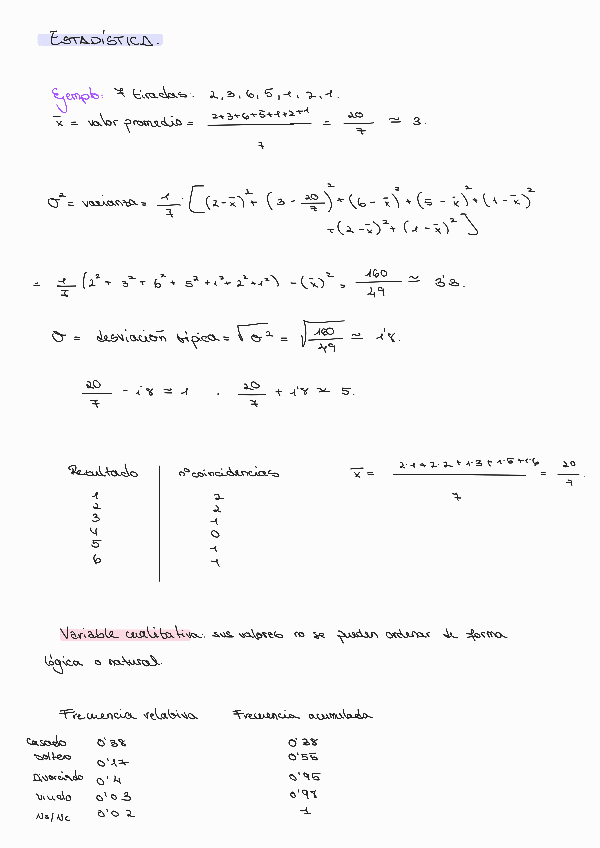 ESTADÍSTICA.
Ejemplo: 7 tiradas: 2, 3, 6, 5, 1, 2, 1.
x̄ = valor promedio = (2+3+6+5+1+2+1)/7 = 20/7 ≈ 3.
σ² = varianza = 1/7 · [(2-x̄)² + (3 - 20/7)² + (6-x̄)² + (5-x̄)² + (1-x̄)²
+ (2-x̄)² + (1-x̄)²]
= 1/7 (2² + 3² + 6² + 5² + 1² + 2² + 1²) - (x̄)² = 160/49 ≈ 3'3.
σ = desviación típica = √σ² = √(160/49) ≈ 1'8.
20/7 - 1'8 ≈ 1 . 20/7 + 1'8 ≈ 5.
Resultado nº coincidencias x̄ = (2·1+2·2+1·3+1·5+1·6)/7 = 20/7.
1 2
2 2
3 1
4 0
5 1
6 1
Variable cualitativa: sus valores no se pueden ordenar de forma
lógica o natural.
Frecuencia relativa Frecuencia acumulada
Casado 0'38 0'38
Soltero 0'17 0'55
Divorciado 0'4 0'95
Viudo 0'03 0'98
Ns/Nc 0'02 1